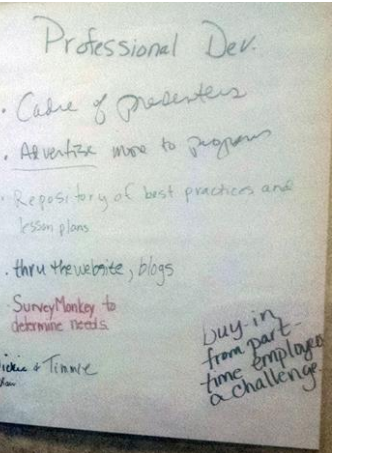 Professional Dev.
· Cadre of presenters
· Advertise more to programs
· Repository of best practices and
lesson plans
· thru the website, blogs
· SurveyMonkey to
determine needs.
& Timmie
buy-in
from part-
time employees
a challenge.